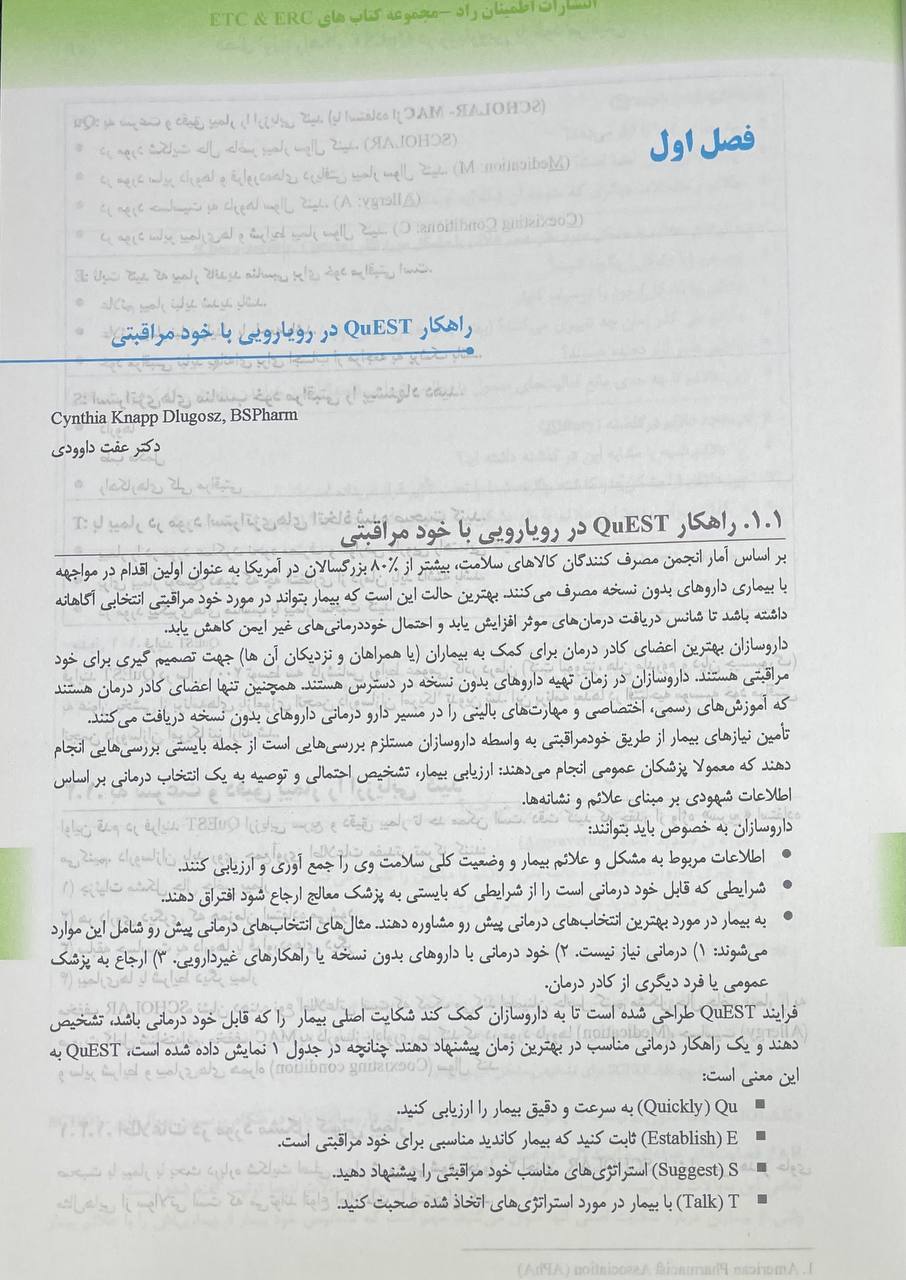 انتشارات اطمینان راد –مجموعه کتاب های ETC & ERC
فصل اول
راهکار QuEST در رویارویی با خود مراقبتی
Cynthia Knapp Dlugosz, BSPharm
دکتر عفت داوودی
۱.۱. راهکار QuEST در رویارویی با خود مراقبتی
بر اساس آمار انجمن مصرف کنندگان کالاهای سلامت، بیشتر از ۸۰٪ بزرگسالان در آمریکا به عنوان اولین اقدام در مواجهه
با بیماری داروهای بدون نسخه مصرف می‌کنند. بهترین حالت این است که بیمار بتواند در مورد خود مراقبتی انتخابی آگاهانه
داشته باشد تا شانس دریافت درمان‌های موثر افزایش یابد و احتمال خوددرمانی‌های غیر ایمن کاهش یابد.
داروسازان بهترین اعضای کادر درمان برای کمک به بیماران (یا همراهان و نزدیکان آن ها) جهت تصمیم گیری برای خود
مراقبتی هستند. داروسازان در زمان تهیه داروهای بدون نسخه در دسترس هستند. همچنین تنها اعضای کادر درمان هستند
که آموزش‌های رسمی، اختصاصی و مهارت‌های بالینی را در مسیر دارو درمانی داروهای بدون نسخه دریافت می‌کنند.
تأمین نیازهای بیمار از طریق خودمراقبتی به واسطه داروسازان مستلزم بررسی‌هایی است از جمله بایستی بررسی‌هایی انجام
دهند که معمولا پزشکان عمومی انجام می‌دهند: ارزیابی بیمار، تشخیص احتمالی و توصیه به یک انتخاب درمانی بر اساس
اطلاعات شهودی بر مبنای علائم و نشانه‌ها.
داروسازان به خصوص باید بتوانند:
● اطلاعات مربوط به مشکل و علائم بیمار و وضعیت کلی سلامت وی را جمع آوری و ارزیابی کنند.
● شرایطی که قابل خود درمانی است را از شرایطی که بایستی به پزشک معالج ارجاع شود افتراق دهند.
● به بیمار در مورد بهترین انتخاب‌های درمانی پیش رو مشاوره دهند. مثال‌های انتخاب‌های درمانی پیش رو شامل این موارد
می‌شوند: ۱) درمانی نیاز نیست. ۲) خود درمانی با داروهای بدون نسخه یا راهکارهای غیردارویی. ۳) ارجاع به پزشک
عمومی یا فرد دیگری از کادر درمان.
فرایند QuEST طراحی شده است تا به داروسازان کمک کند شکایت اصلی بیمار را که قابل خود درمانی باشد، تشخیص
دهند و یک راهکار درمانی مناسب در بهترین زمان پیشنهاد دهند. چنانچه در جدول ۱ نمایش داده شده است، QuEST به
این معنی است:
■ Qu (Quickly) به سرعت و دقیق بیمار را ارزیابی کنید.
■ E (Establish) ثابت کنید که بیمار کاندید مناسبی برای خود مراقبتی است.
■ S (Suggest) استراتژی‌های مناسب خود مراقبتی را پیشنهاد دهید.
■ T (Talk) با بیمار در مورد استراتژی‌های اتخاذ شده صحبت کنید.